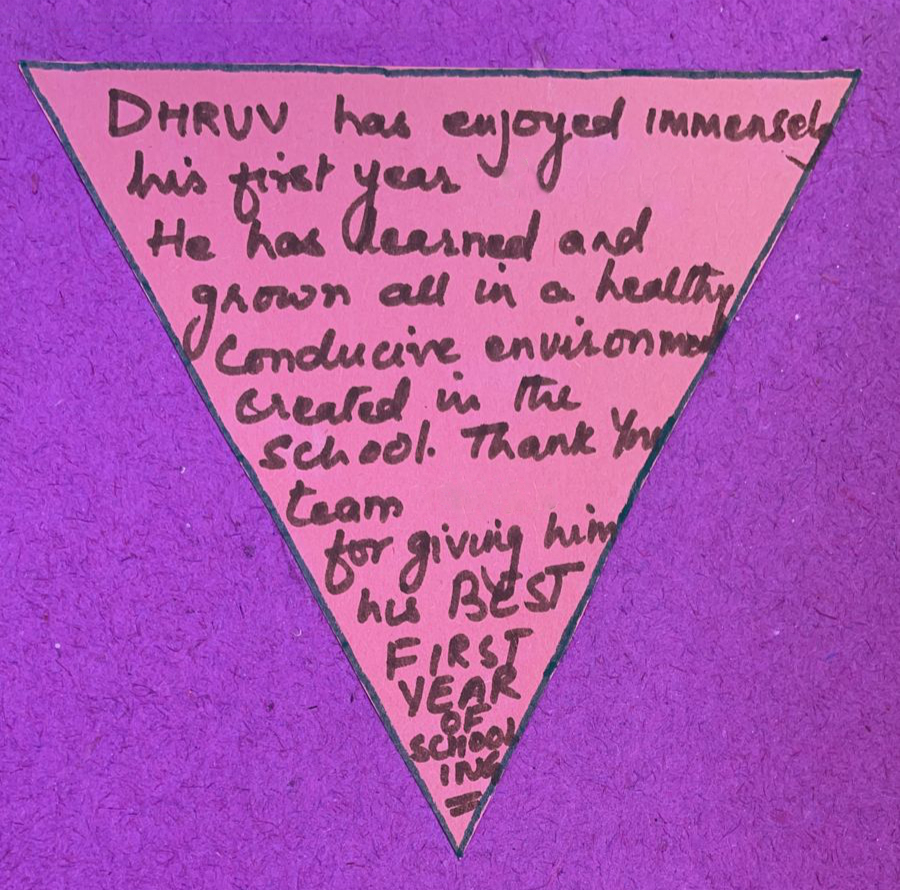 DHRUV has enjoyed immensely
his first year
He has learned and
grown all in a healthy
conducive environment
created in the
school. Thank You
team
for giving him
his BEST
FIRST
YEAR
OF
SCHOOL
ING